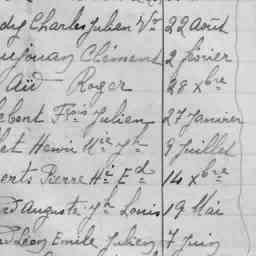 Charles Julien Vor 22 août
Clément 2 février
Aid Roger 28 Xbre
Fçois Julien 27 Janvier
Henri Mie Jh 9 Juillet
Pierre Hi Ed 14 Xbre
Auguste Jh Louis 19 Mai
Léon Emile Julien 7 Juin